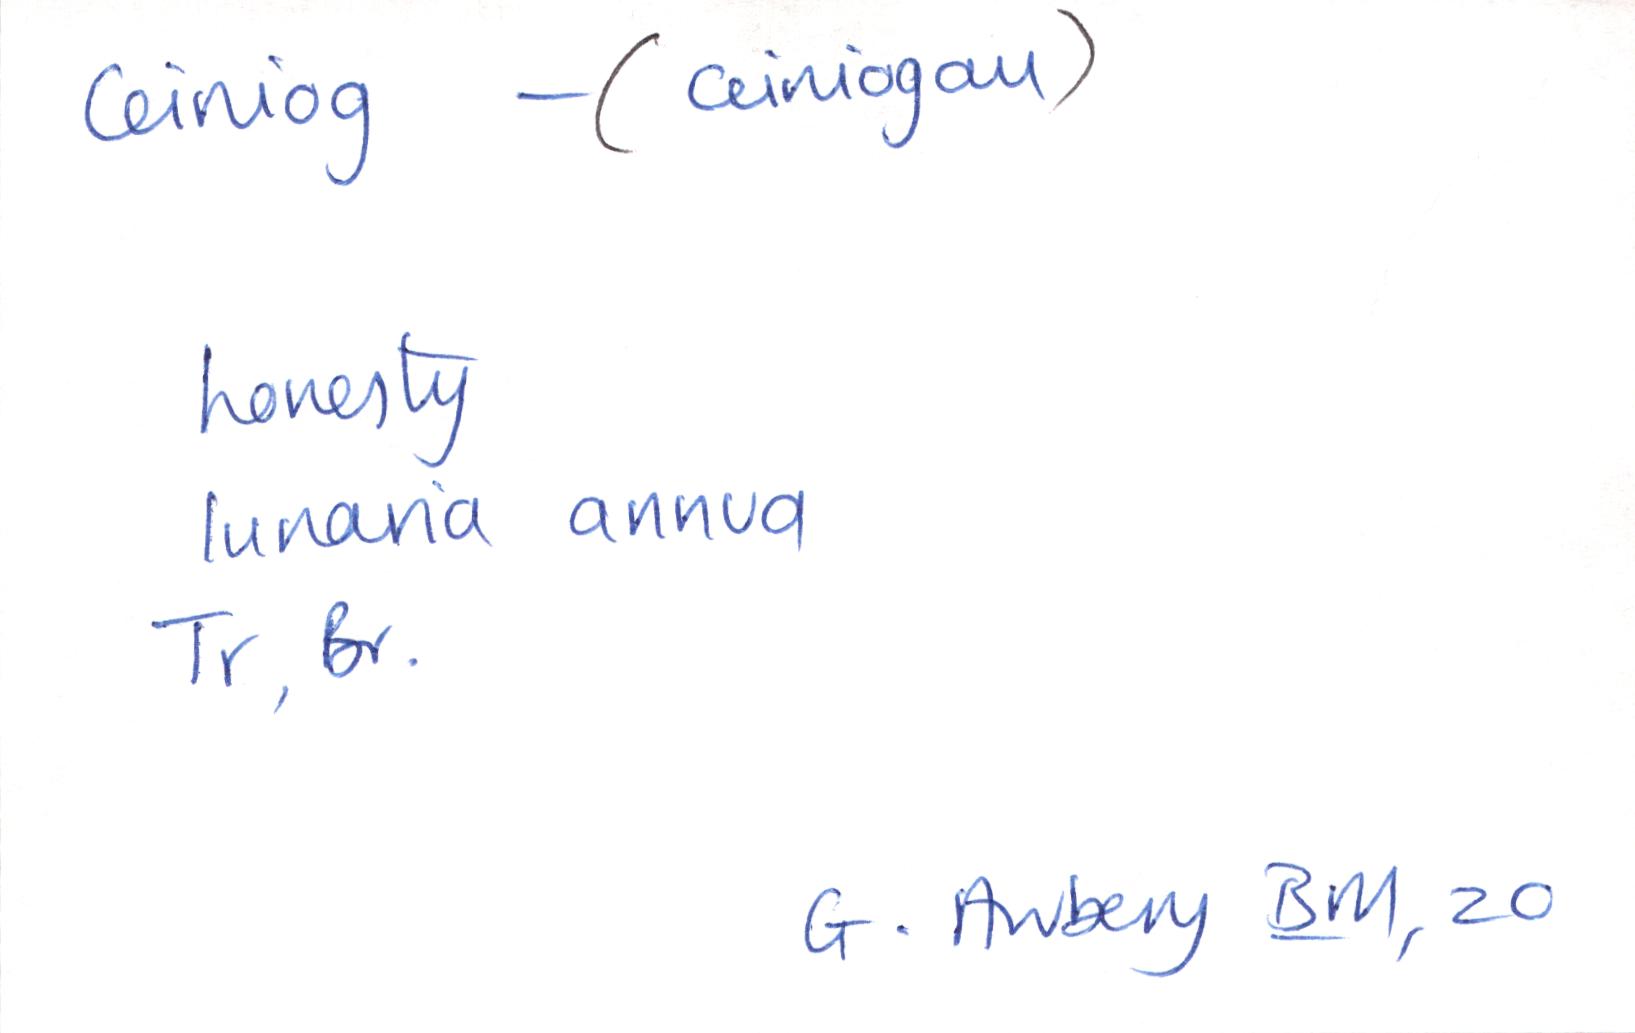 Ceiniog - (ceiniogau)
honesty
lunaria annua
Tr, Br.
G. Awbery BM, 20